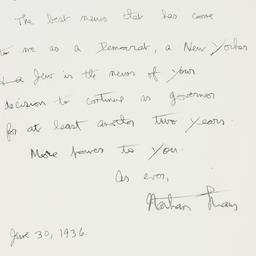 The best news that has come
to me as a Democrat, a New Yorker
a Jew is the news of your
decision to continue as governor
for at least another two years.
More power to you.
As ever,
Nathan Straus
June 30, 1936